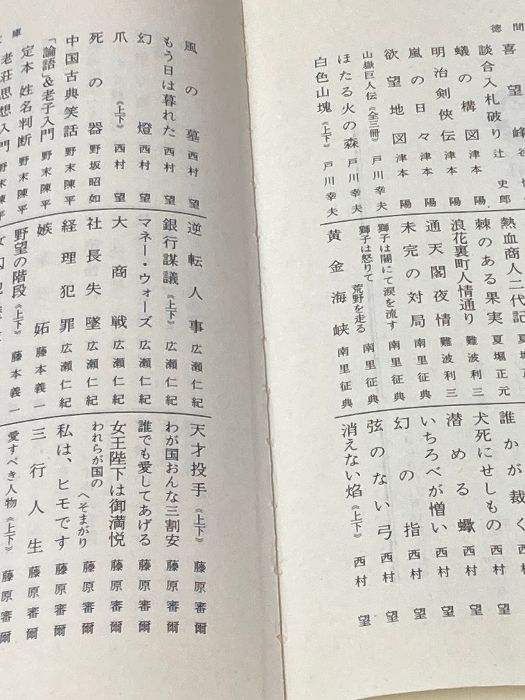 徳間
喜望峰 谷
談合入札破り 辻史郎
蟻の構図 津本陽
明治剣侠伝 津本陽
嵐の日々 津本陽
欲望地図 津本陽
山嶽巨人伝《全三冊》 戸川幸夫
ほたる火の森 戸川幸夫
白色山塊《上下》 戸川幸夫
熱血商人二代記 夏堀正
棘のある果実 夏堀正元
浪花裏町人情通り 難波利三
通天閣夜情 難波利三
未完の対局 南里征典
獅子は闇にて涙を流す 南里征典
獅子は怒りて
荒野を走る 南里征典
黄金海峡 南里征典
誰が裁く 西村
犬死にせしもの 西村望
潜める蠍 西村望
いちろべが憎い 西村望
幻の指 西村望
弦のない弓 西村望
消えない焰《上下》 西村望
庫
風の墓 西村望
もう日は暮れた 西村望
幻燈 西村望
爪《上下》 西村望
死の器 野坂昭如
中国古典笑話 野末陳平
「論語」&老子入門 野末陳平
定本 姓名判断 野末陳平
老荘思想入門 野末陳平
逆転人事 広瀬仁紀
銀行謀議《上下》 広瀬仁紀
マネー・ウォーズ 広瀬仁紀
大商戦 広瀬仁紀
社長失墜 広瀬仁紀
経理犯罪 広瀬仁紀
嫉妬 藤本義一
野望の階段《上下》 藤本義一
天才投手《上下》 藤原審爾
わが国おんな三割安 藤原審爾
誰でも愛してあげる 藤原審爾
女王陛下は御満悦 藤原審爾
われらが国の
へそまがり 藤原審爾
私は、ヒモです 藤原審爾
三行人生 藤原審爾
愛すべき人物《上下》 藤原審爾